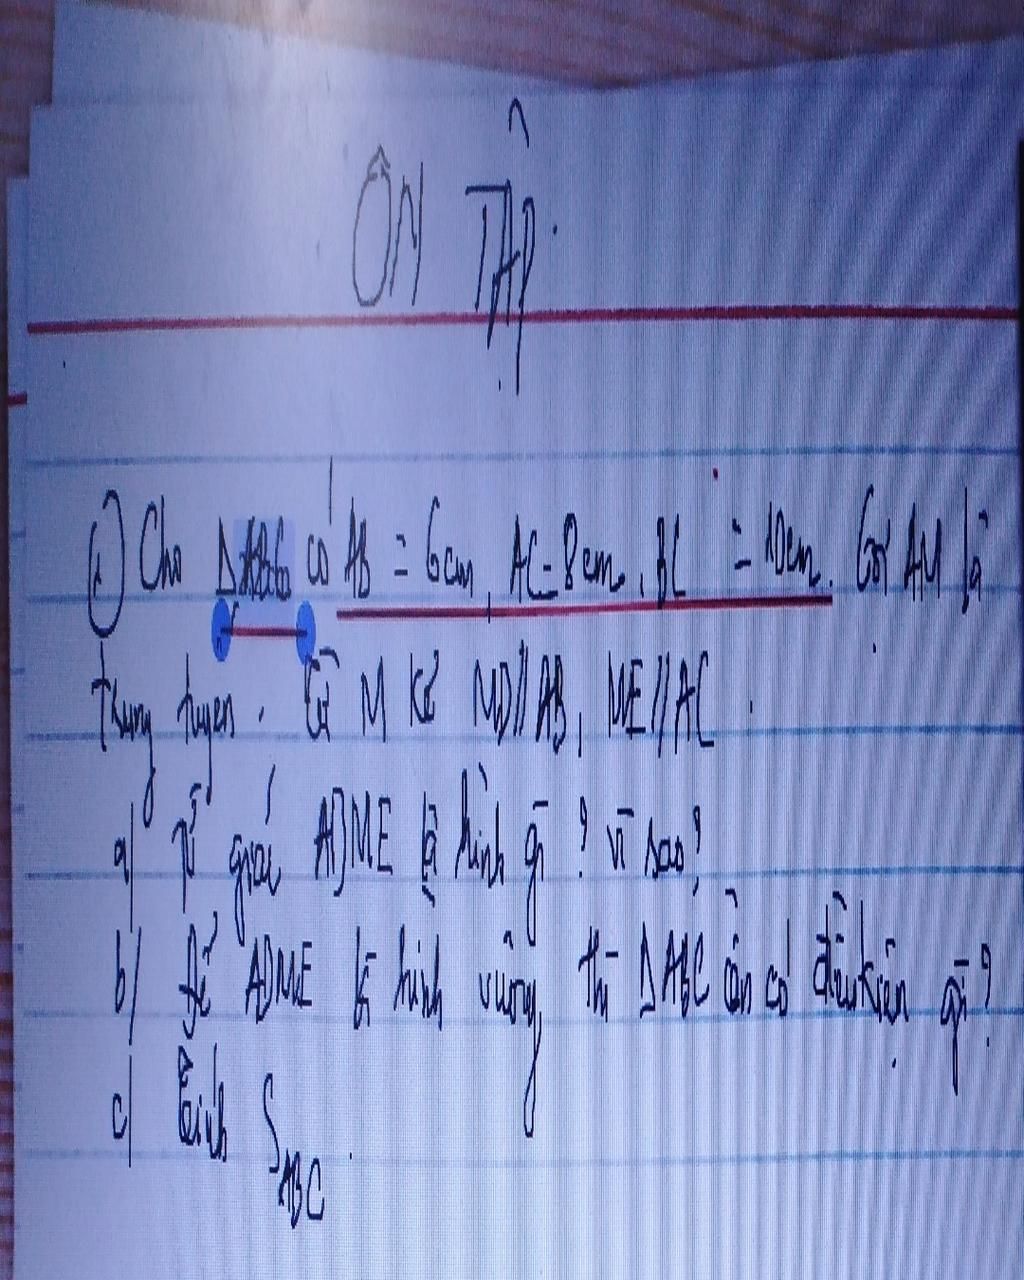 ÔN TẬP
1) Cho ΔABC có AB = 6cm, AC = 8cm, BC = 10cm. Gọi AM là
trung tuyến. Từ M kẻ MD//AB, ME//AC.
a) Tứ giác ADME là hình gì? Vì sao?
b) Để ADME là hình vuông thì ΔABC cần có điều kiện gì?
c) Tính S_ABC